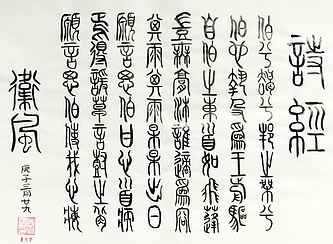 詩經
伯兮朅兮邦之桀兮
伯也執殳為王前驅
自伯之東首如飛蓬
豈無膏沐誰適為容
其雨其雨杲杲出日
願言思伯甘心首疾
焉得諼草言樹之背
願言思伯使我心痗
衛風
庚子三月廿六